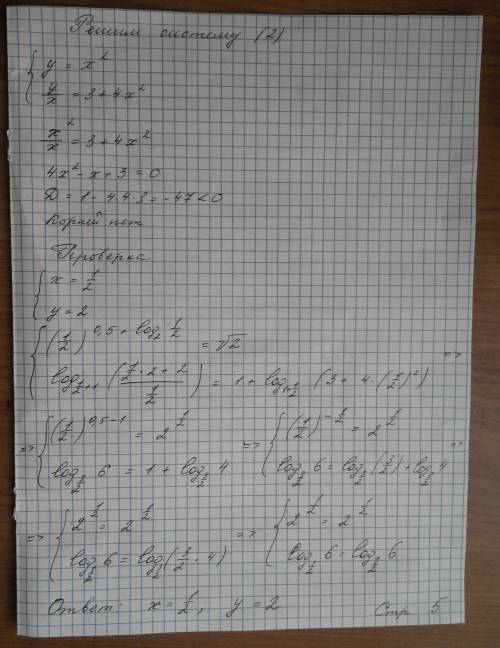 Решим систему (2)
{ y = x²
{ y/x = 3+4x²
x²/x = 3+4x²
4x² - x + 3 = 0
D = 1 - 4·4·3 = -47 < 0
Корней нет
Проверка
{ x = 1/2
{ y = 2
{ (1/2)^(0,5 + log₂ 1/2) = √2
{ log_(1/2+1) ((1/2·2+2)/(1/2)) = 1 + log_(1+1/2) (3 + 4·(1/2)²) =>
=> { (1/2)^(0,5-1) = 2^(1/2) => { (1/2)^(-1/2) = 2^(1/2)
{ log_(3/2) 6 = 1 + log_(3/2) 4 { log_(3/2) 6 = log_(3/2) (3/2) + log_(3/2) 4 =>
=> { 2^(1/2) = 2^(1/2) => { 2^(1/2) = 2^(1/2)
{ log_(3/2) 6 = log_(3/2) (3/2 · 4) { log_(3/2) 6 = log_(3/2) 6
Ответ: x = 1/2, y = 2 Стр 5